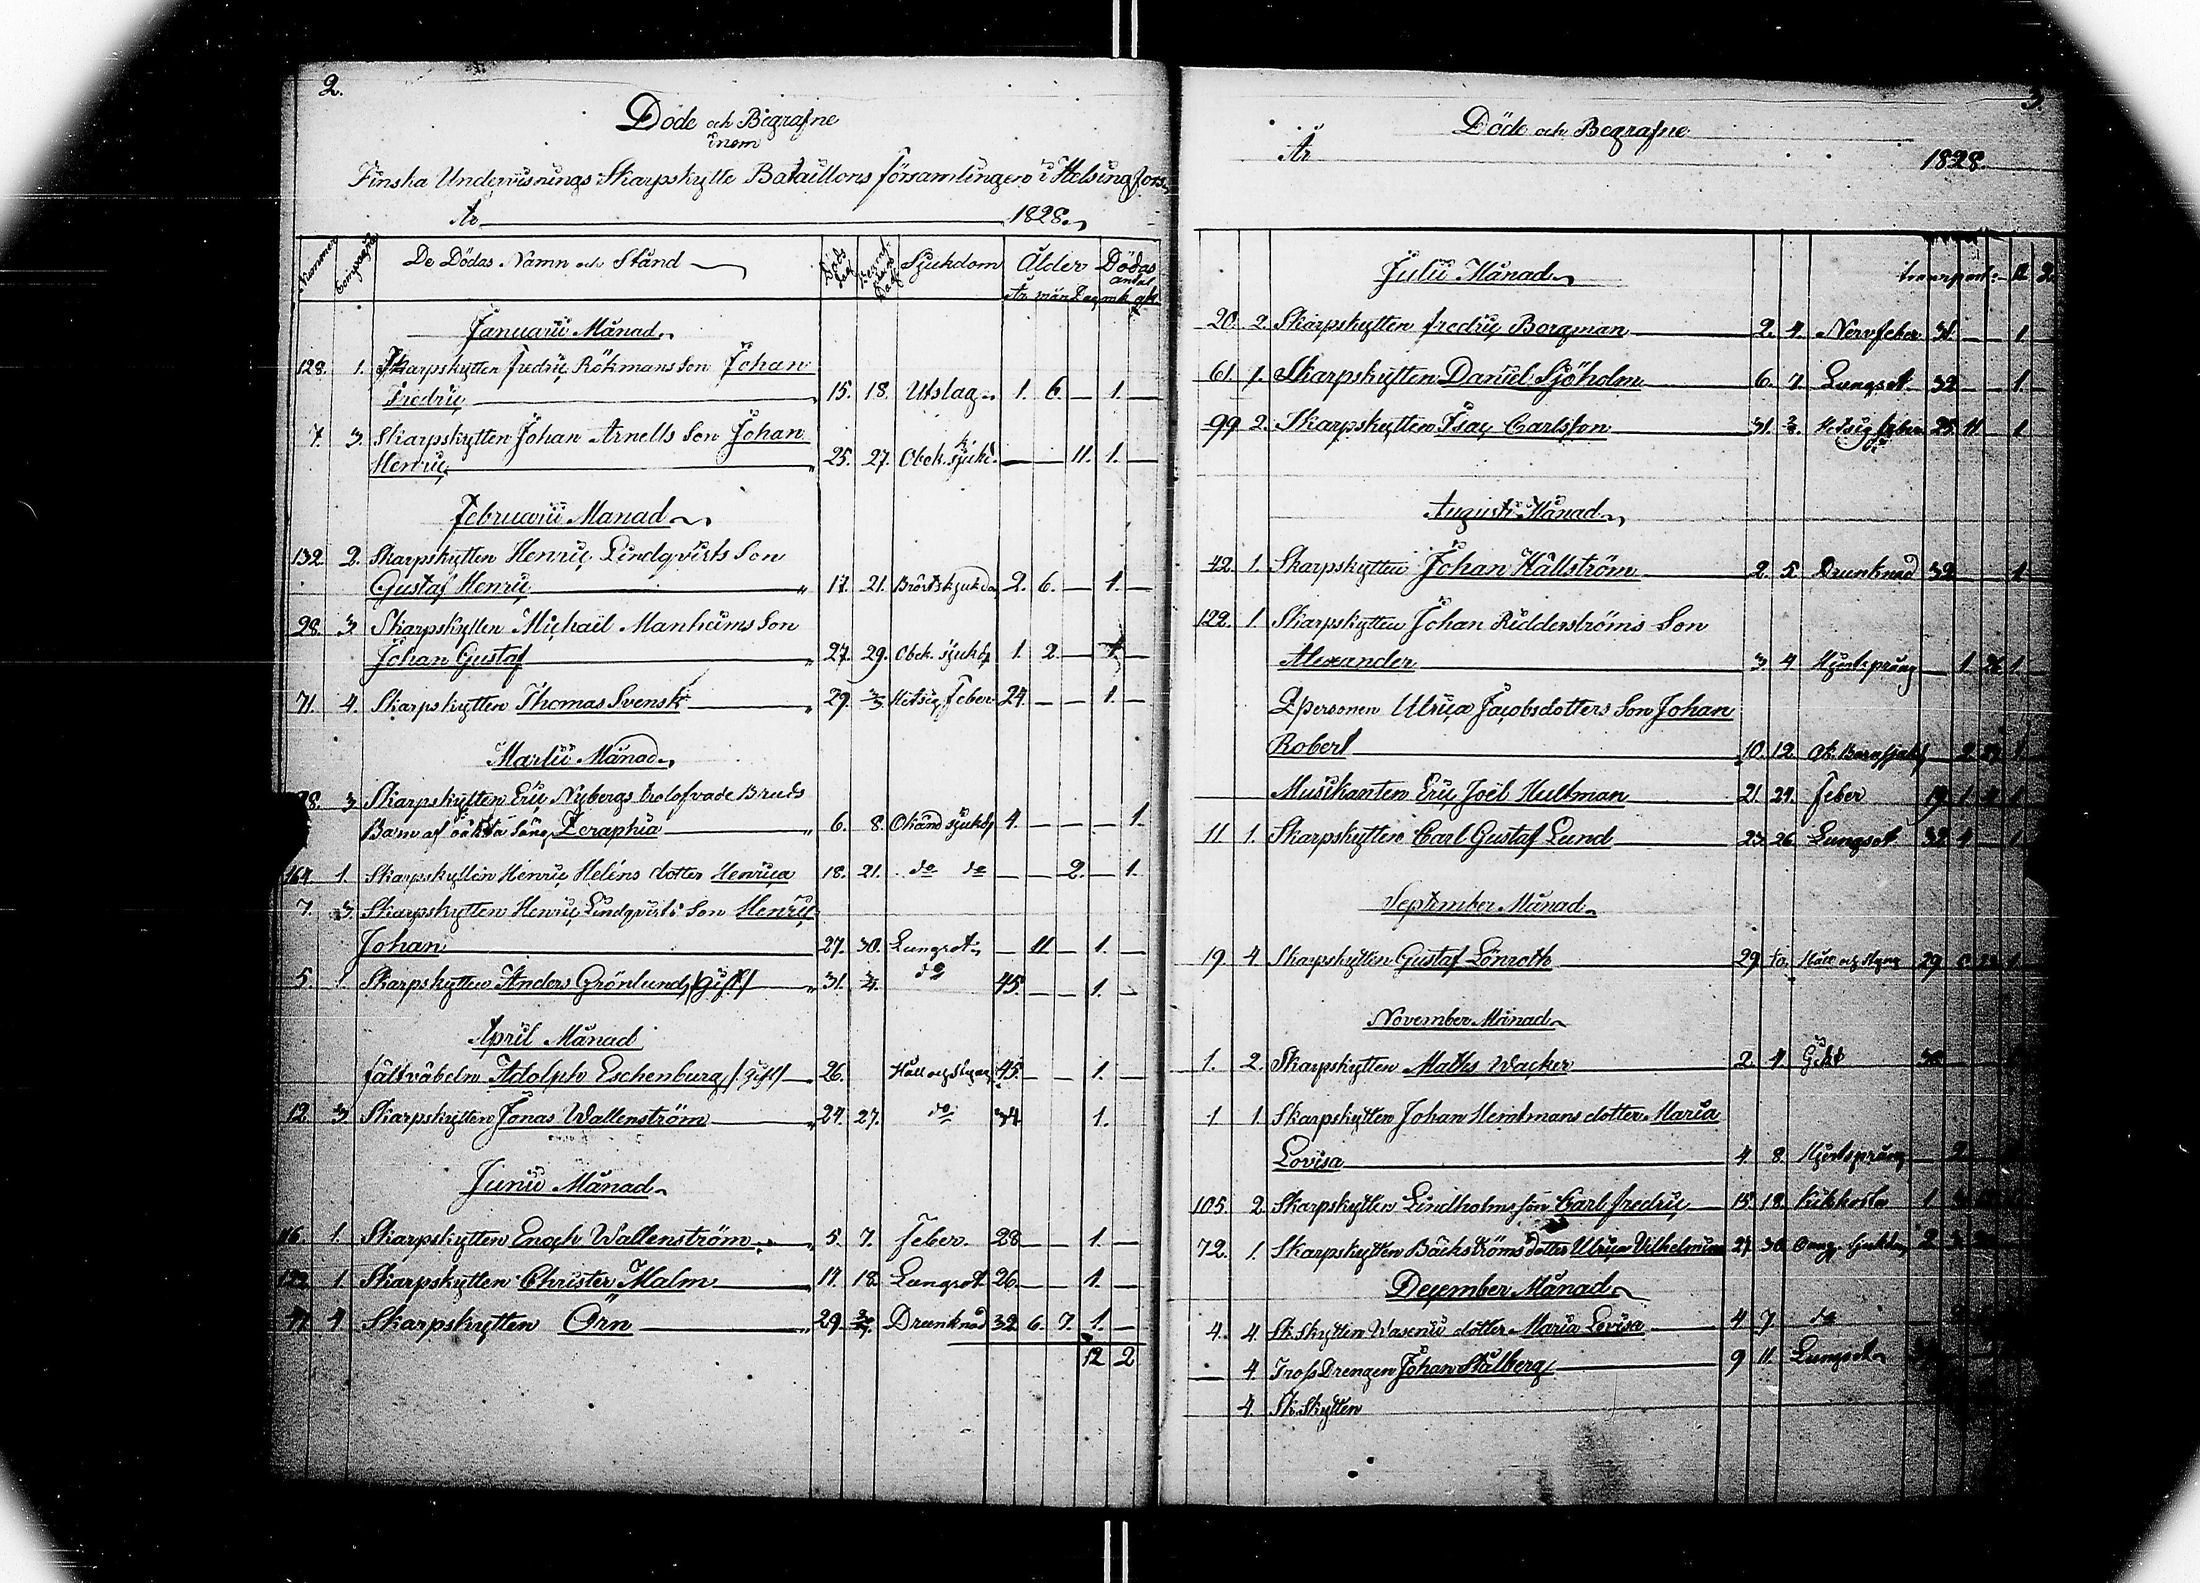 2.
Döde och Begrafne
inom
Finska Undervisnings Skarpskytte Bataillons församlingen i Helsingfors
År 1828.
Nummer Compagnie De Dödas Namn och Stånd Döds dag Begrafnings Dag Sjukdom Ålder Dödas antal
År mån Dag mk qk
Januarii Månad
128. 1. Skarpskytten Fredric Rökmans Son Johan
Fredric 15. 18. Utslag 1. 6. — 1. —
7. 3. Skarpskytten Johan Arnells Son Johan
Henric 25. 27. Obek. sjukd. — 11. 1. —
Februarii Månad
132. 2. Skarpskytten Henric Lindqvists Son
Gustaf Henric 17. 21. Bröstsjukdom 2. 6. — 1. —
28. 3 Skarpskytten Michail Manheims Son
Johan Gustaf 27. 29. Obek. sjukd. 1. 2. — 1. —
71. 4. Skarpskytten Thomas Svensk 29. 3/3 Hetsig Feber 24. — — 1. —
Martii Månad
28. 3 Skarpskytten Eric Nybergs trolofvade Bruds
Barn af oäkta säng Zeraphia 6. 8. Okänd sjukd. 4. — — — 1.
164 1. Skarpskytten Henric Heléns dotter Henrica 18. 21. do do — — 2. — 1.
7. 3. Skarpskytten Henric Lindqvists Son Henric
Johan 27. 30. Lungsot — 11 — 1. —
5. 1. Skarpskytten Anders Grönlund /Gift/ 31. 3/4. do 45. — — 1. —
April Månad
fältväbeln Adolph Eschenburg /Gift/ 26. Håll och Styng 45. — — 1. —
12. 3. Skarpskytten Jonas Wallenström 24. 27. do 34 1.
Junii Månad
16. 1. Skarpskytten Enoch Wallenström 5. 7. Feber. 28 — — 1. —
122 1. Skarpskytten Christer Malm 17. 18. Lungsot 26 — — 1. —
47 4 Skarpskytten Örn 29. Drunknad 32 6. 7. 1. —
12 2
3
Döde och Begrafne
År 1828.
Julii Månad transport: 12 2
20. 2. Skarpskytten Fredric Borgman 2. 4. Nervfeber 31. — — 1
61. 1. Skarpskytten Daniel Sjöholm 6. 7. Lungsot 32 — — 1.
99 2. Skarpskytten Isac Carlsson 31. Hetsig feber 25. 11 — 1
Augusti Månad
42. 1. Skarpskytten Johan Hällström 2. 5 Drunknad 32 1
129. 1 Skarpskytten Johan Ridderströms Son
Alexander 3 4 Hjertsprång — 1 26 1.
Qpersonen Ulrica Jacobsdotters Son Johan
Robert 10. 12. Ok. Barnsjukd. — 2 1
Musikanten Eric Joël Hultman 21. 24. Feber 19 1 1
11 1. Skarpskytten Carl Gustaf Lund 23. 26 Lungsot 32 4 — 1
September Månad
19. 4 Skarpskytten Gustaf Lönroth 29 Håll och Styng 29 1
November Månad
1. 2. Skarpskytten Mats Wacker 2. 4. Gikt
1 1. Skarpskytten Johan Hemtmans dotter Maria
Lovisa 4 8. Hjertsprång — 2
105. 2 Skarpskytten Lindholms son Carl Fredric 15. 18. Kikhosta 1
72. 1. Skarpskytten Bäckströms dotter Ulrica Vilhelmina 27 30 2
December Månad
4. 4. Sk Skytten Wasenii dotter Maria Lovisa 4 7 do
— 4 Tross Drengen Johan Stålberg 9 11 Lungsot
4. Sk Skytten